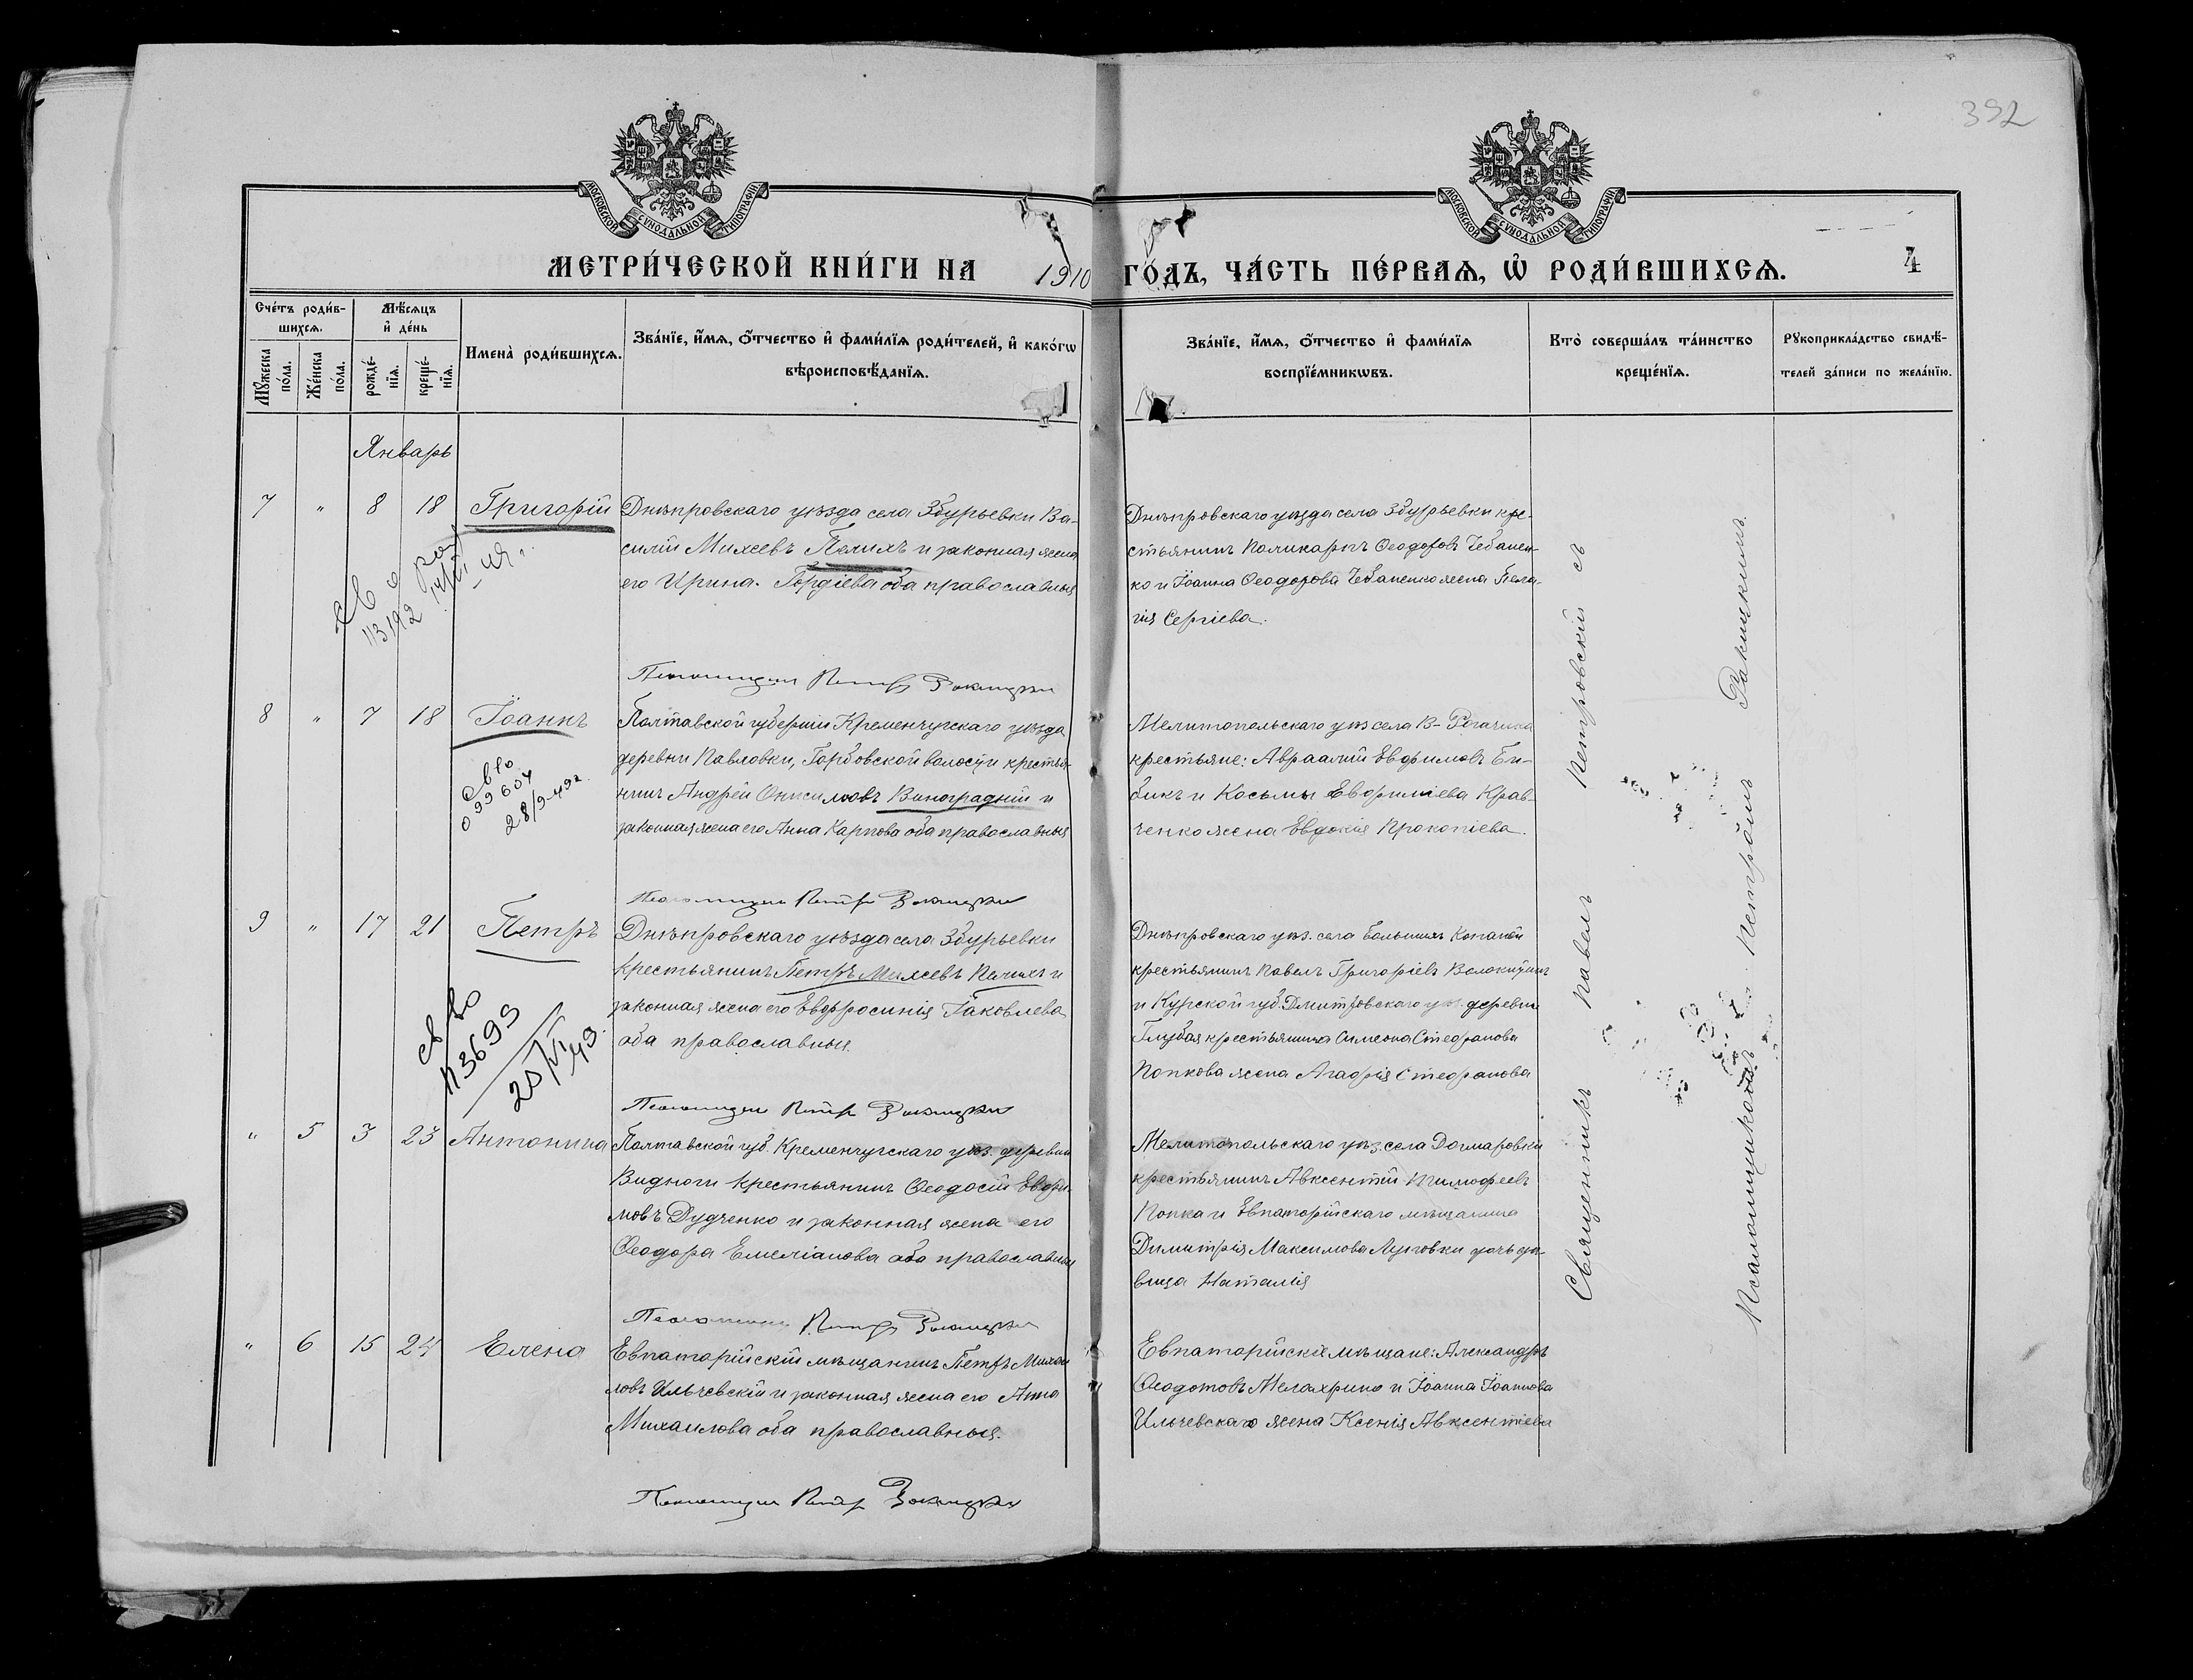 392
МОСКОВСКОЙ СѴНОДАЛЬНОЙ ТИПОГРАФІИ
МОСКОВСКОЙ СѴНОДАЛЬНОЙ ТИПОГРАФІИ
МЕТРИ́ЧЕСКОЙ КНИ́ГИ НА 1910 ГО́ДЪ, ЧА́СТЬ ПЕ́РВАѦ, Ѽ РОДИ́ВШИХСѦ.
4
Сче́тъ роди́в-
шихсѧ.
Мꙋ́жеска
по́ла.
Же́нска
по́ла.
Мѣ́сѧцъ
и҆ де́нь
рожде́-
нїѧ.
креще́-
нїѧ.
Имена̀ роди́вшихсѧ.
Зва́нїе, и҆́мѧ, ѻ҆́тчество и҆ фами́лїѧ роди́телей, и҆ како́гѡ
вѣроисповѣ́данїѧ.
Зва́нїе, и҆́мѧ, ѻ҆́тчество и҆ фами́лїѧ
воспрїе́мникѡвъ.
Кто̀ соверша́лъ та́инство
креще́нїѧ.
Рꙋкоприкла́дство свидѣ́-
телей за́писи по жела́нїю.
Январь
7 " 8 18 Григорій
Днѣпровскаго уѣзда села Збурьевки Ва-
силій Михеевъ Пелихъ и законная жена
его Ирина Гордіева оба православныя
Днѣпровскаго уѣзда села Збурьевки кре-
стьянинъ Поликарпъ Ѳеодоровъ Чебанен-
ко и Іоанна Ѳеодорова Чебаненко жена Пела-
гія Сергіева.
113192
Псаломщикъ Петръ Ракицкій
8 " 7 18 Іоаннъ
Полтавской губерніи Кременчугскаго уѣзда
деревни Павловки, Горбовской волости крестья-
нинъ Андрей Онисимовъ Виноградній и
законная жена его Анна Карпова оба православныя
Мелитопольскаго уѣз села В-Рогачика
крестьяне: Авраамій Евфимовъ Би-
бикъ и Косьмы Евфиміева Крав-
ченко жена Евдокія Прокопіева.
св во
099604
28/9-49г.
Псаломщикъ Петръ Ракицкій
9 " 17 21 Петръ
Днѣпровскаго уѣзда села Збурьевки
крестьянинъ Петръ Михеевъ Пелихъ и
законная жена его Евфросинія Іаковлева
оба православныя.
Днѣпровскаго уѣз. села Большихъ Копаней
крестьянинъ Павелъ Григоріевъ Волокитинъ
и Курской губ. Дмитровскаго уѣз. деревни
Глубая крестьянина Симеона Стефанова
Попкова жена Агафія Стефанова
св во
113699
25/VI 49.
Псаломщикъ Петръ Ракицкій
" 5 3 23 Антонина
Полтавской губ. Кременчугскаго уѣз. деревни
крестьянинъ Ѳеодосій Евфи-
мовъ Дудченко и законная жена его
Ѳеодора Емеліанова оба православныя
Мелитопольскаго уѣз. села Догмаровки
крестьянинъ Авксентій Тимофеевъ
Попка и Евпаторійскаго мѣщанина
Димитрія Максимова Луговки дочь дѣ-
вица Наталія
Псаломщикъ Петръ Ракицкій
" 6 15 24 Елена
Евпаторійскій мѣщанинъ Петръ Михаи-
ловъ Ильчевскій и законная жена его Анна
Михаилова оба православныя.
Евпаторійскіе мѣщане: Александръ
Ѳеодотовъ Мелахрино и Іоанна Іоаннова
Ильчевскаго жена Ксенія Авксентіева
Псаломщикъ Петръ Ракицкій
Священникъ Павелъ Петровскій съ
Псаломщикомъ Петромъ Ракицкимъ.